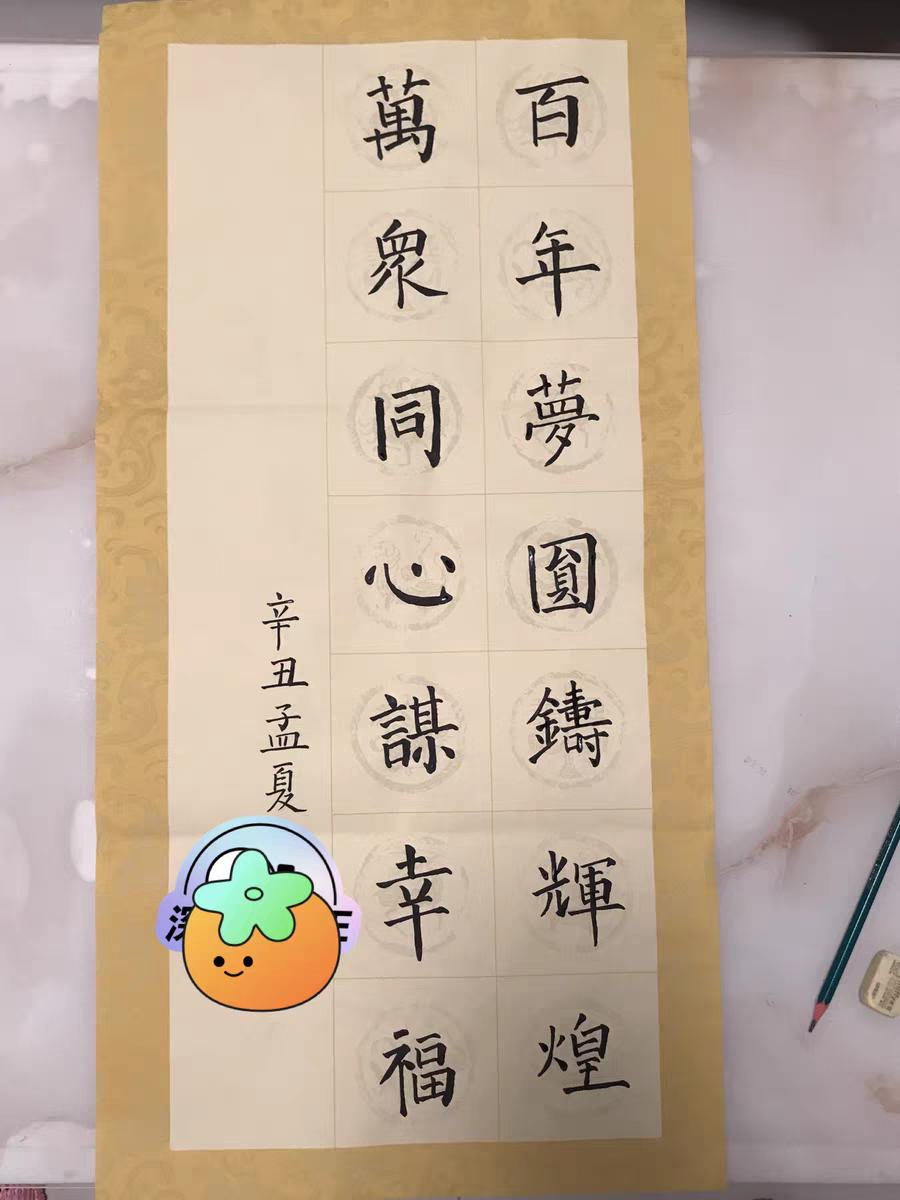 百年夢圓鑄輝煌
萬眾同心謀幸福
辛丑孟夏